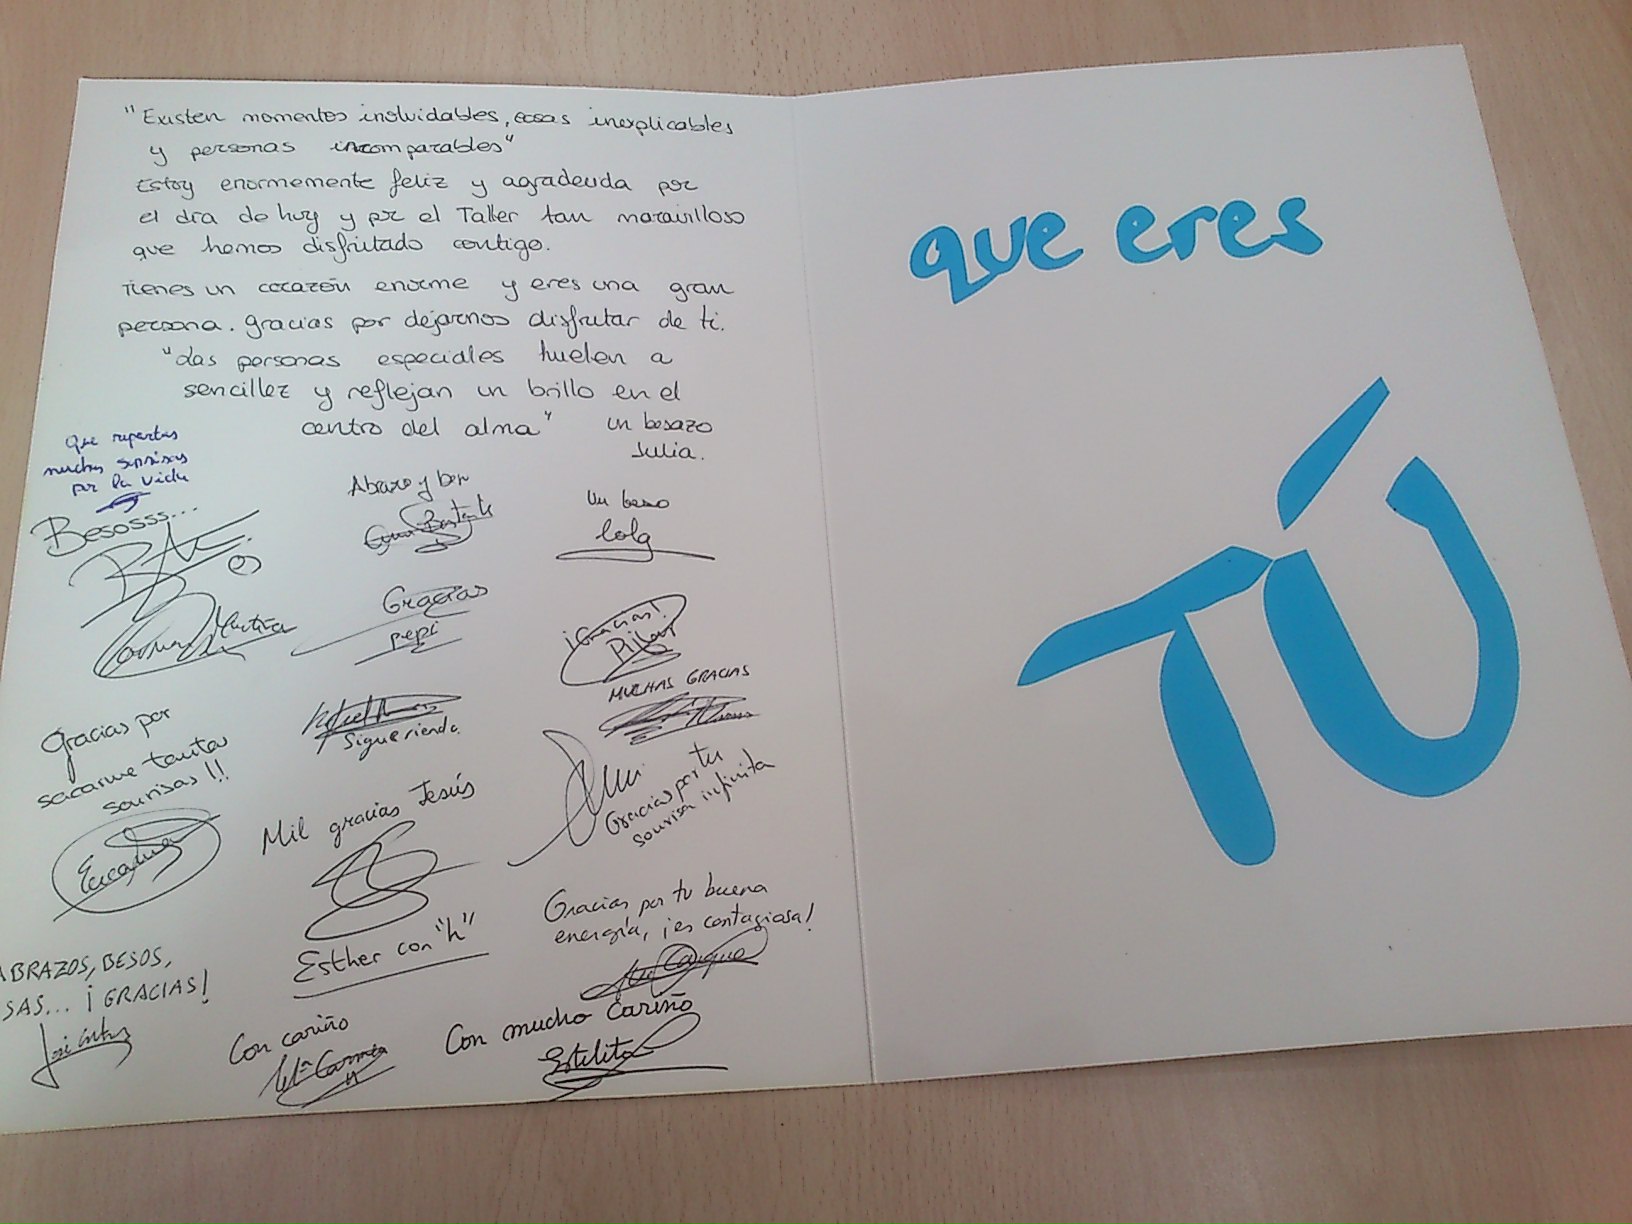 "Existen momentos inolvidables, cosas inexplicables
y personas incomparables"
Estoy enormemente feliz y agradecida por
el día de hoy y por el Taller tan maravilloso
que hemos disfrutado contigo.
Tienes un corazón enorme y eres una gran
persona. Gracias por dejarnos disfrutar de ti.
"Las personas especiales huelen a
sencillez y reflejan un brillo en el
centro del alma"
un besazo
Julia.
Que repartas
muchas sonrisas
por la vida
Besosss...
Abrazo y
Un beso
Lola
Martina
Gracias
pepi
¡Gracias!
Pilar
MUCHAS GRACIAS
Gracias por
sacarme tantas
sonrisas!!!
Sigue riendo.
Gracias por tu
sonrisa infinita
Mil gracias Jesús
Esther con "h"
Gracias por tu buena
energía, ¡es contagiosa!
ABRAZOS, BESOS,
SAS... ¡GRACIAS!
Con cariño
Mª Carmen
Con mucho cariño
Estelita
que eres
TÚ